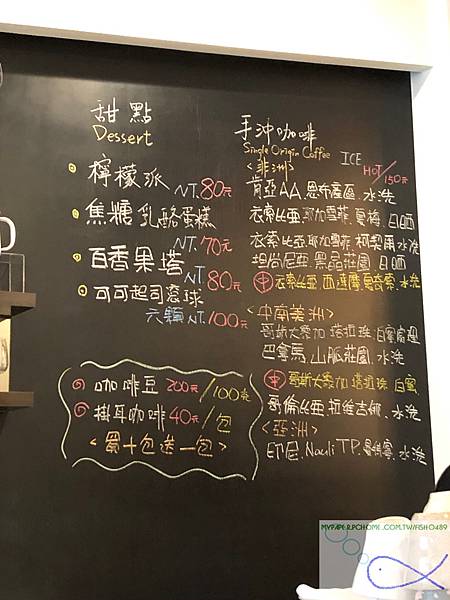 甜點
Dessert
檸檬派 NT.80元
焦糖乳酪蛋糕
NT.70元
百香果塔 NT 80元
可可起司
六顆 NT.100元
咖啡豆 200元/100克
掛耳咖啡 40元/包
<買十包送一包>
手沖咖啡
Single Origin Coffee ICE
HOT/150元
<非洲>
肯亞AA.恩布產區.水洗
衣索比亞.耶加雪菲.夏梅.日晒
衣索比亞耶加雪菲 柯契爾水洗
坦尚尼亞.黑晶莊園.日晒
中 衣索比亞 西達摩.夏奇索.水洗
<中南美洲>
哥斯大黎加 塔拉珠.白蜜處理
巴拿馬.山脈莊園.水洗
中 哥斯大黎加 塔拉珠 白蜜
哥倫比亞.水洗
<亞洲>
印尼.TP.水洗
MYPAPER.PCHOME.COM.TW/FISH0489